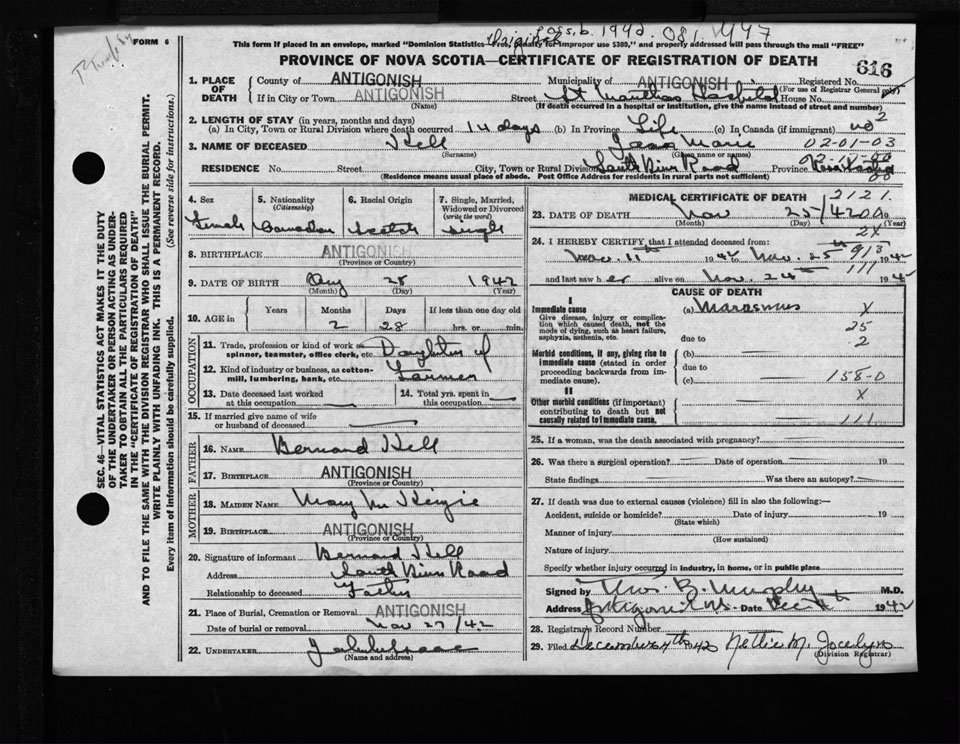 FORM 6
1942. 081. 447
This form if placed in an envelope, marked "Dominion Statistics—Free, penalty for improper use $300," and properly addressed will pass through the mail "FREE"
PROVINCE OF NOVA SCOTIA—CERTIFICATE OF REGISTRATION OF DEATH
616
1. PLACE OF DEATH
County of ANTIGONISH Municipality of ANTIGONISH Registered No.
(For use of Registrar General only)
If in City or Town ANTIGONISH Street St Marthas Hospital House No.
(Name) (If death occurred in a hospital or institution, give the name instead of street and number)
2. LENGTH OF STAY (in years, months and days)
(a) In City, Town or Rural Division where death occurred 14 days (b) In Province Life (c) In Canada (if immigrant) no 2
3. NAME OF DECEASED Kell Marie 02-01-03
(Surname) (Given name or names)
RESIDENCE No. Street City, Town or Rural Division South River Road Province Nova Scotia
(Residence means usual place of abode. Post Office Address for residents in rural parts not sufficient)
4. Sex Female
5. Nationality (Citizenship) Canadian
6. Racial Origin Scotch
7. Single, Married, Widowed or Divorced (write the word) single
8. BIRTHPLACE ANTIGONISH
(Province or Country)
9. DATE OF BIRTH Aug 28 1942
(Month) (Day) (Year)
10. AGE in Years Months 2 Days 28 If less than one day old hrs. or min.
OCCUPATION
11. Trade, profession or kind of work as spinner, teamster, office clerk, etc. Daughter of
12. Kind of industry or business, as cotton-mill, lumbering, bank, etc. Farmer
13. Date deceased last worked at this occupation
14. Total yrs. spent in this occupation
15. If married give name of wife or husband of deceased
FATHER
16. NAME Bernard Kell
17. BIRTHPLACE ANTIGONISH
(Province or Country)
MOTHER
18. MAIDEN NAME Mary McKenzie
19. BIRTHPLACE ANTIGONISH
(Province or Country)
20. Signature of informant Bernard Kell
Address South River Road
Relationship to deceased Father
21. Place of Burial, Cremation or Removal ANTIGONISH
Date of burial or removal Nov 27/42
22. UNDERTAKER
(Name and address)
MEDICAL CERTIFICATE OF DEATH 2121.
23. DATE OF DEATH Nov 25/42
(Month) (Day) (Year)
24. I HEREBY CERTIFY that I attended deceased from:
Nov. 11th 1942 Nov. 25th 1942
and last saw her alive on Nov. 24th 1942
913
111
CAUSE OF DEATH
I
Immediate cause (a) Marasmus X
Give disease, injury or complication which caused death, not the mode of dying, such as heart failure, asphyxia, asthenia, etc.
25
due to 2
Morbid conditions, if any, giving rise to immediate cause (stated in order proceeding backwards from immediate cause).
(b)
due to
(c) 158-0
II
X
Other morbid conditions (if important) contributing to death but not causally related to immediate cause.
111
25. If a woman, was the death associated with pregnancy?
26. Was there a surgical operation? Date of operation 19
State findings Was there an autopsy?
27. If death was due to external causes (violence) fill in also the following:—
Accident, suicide or homicide? Date of injury 19
(State which)
Manner of injury
(How sustained)
Nature of injury
Specify whether injury occurred in industry, in home, or in public place
Signed by Thos. B. Murphy M.D.
Address Antigonish Date Dec 1942
28. Registrar's Record Number
29. Filed December 4th 1942 Nettie M. Jocelyn
(Division Registrar)
SEC. 46—VITAL STATISTICS ACT MAKES IT THE DUTY
OF THE UNDERTAKER OR PERSON ACTING AS UNDER-
TAKER TO OBTAIN ALL THE PARTICULARS REQUIRED
IN THE "CERTIFICATE OF REGISTRATION OF DEATH"
AND TO FILE THE SAME WITH THE DIVISION REGISTRAR WHO SHALL ISSUE THE BURIAL PERMIT.
WRITE PLAINLY WITH UNFADING INK. THIS IS A PERMANENT RECORD.
Every item of information should be carefully supplied. (See reverse side for instructions.)